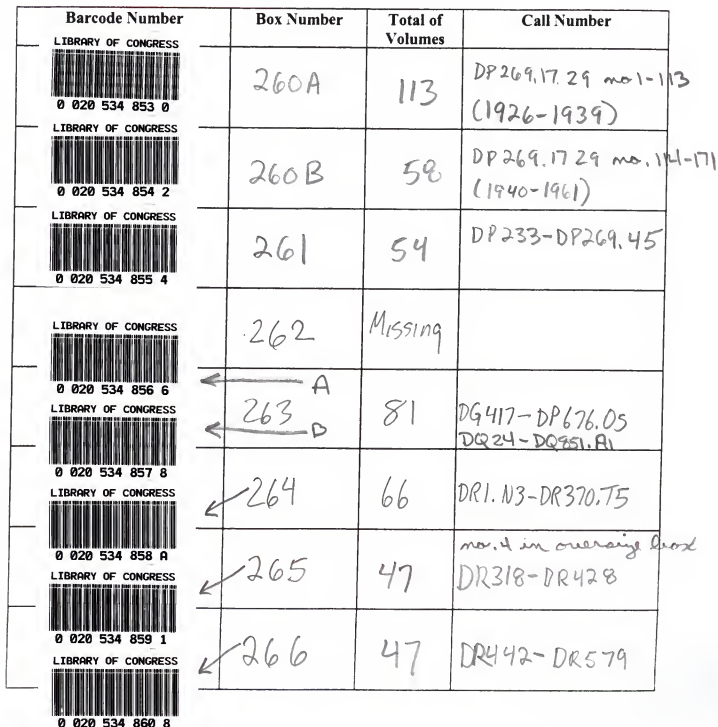 Barcode Number Box Number Total of Volumes Call Number
LIBRARY OF CONGRESS
0 020 534 853 0
260A 113 DP269.17.29 no 1-113
(1926-1939)
LIBRARY OF CONGRESS
0 020 534 854 2
260B 58 DP269.17 29 no. 114-171
(1940-1961)
LIBRARY OF CONGRESS
0 020 534 855 4
261 54 DP233-DP269.45
262 Missing
LIBRARY OF CONGRESS
0 020 534 856 6
A
263 81 DG417-DP676.05
B DQ24-DQ851.A1
LIBRARY OF CONGRESS
0 020 534 857 8
264 66 DR1.N3-DR370.T5
LIBRARY OF CONGRESS
0 020 534 858 A
no. 4 in oversize box
265 47 DR318-DR428
LIBRARY OF CONGRESS
0 020 534 859 1
266 47 DR442-DR579
LIBRARY OF CONGRESS
0 020 534 860 8